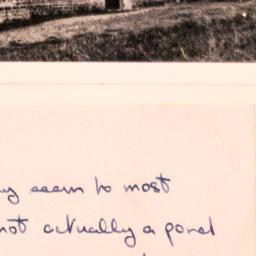 seem to most
not actually a pond